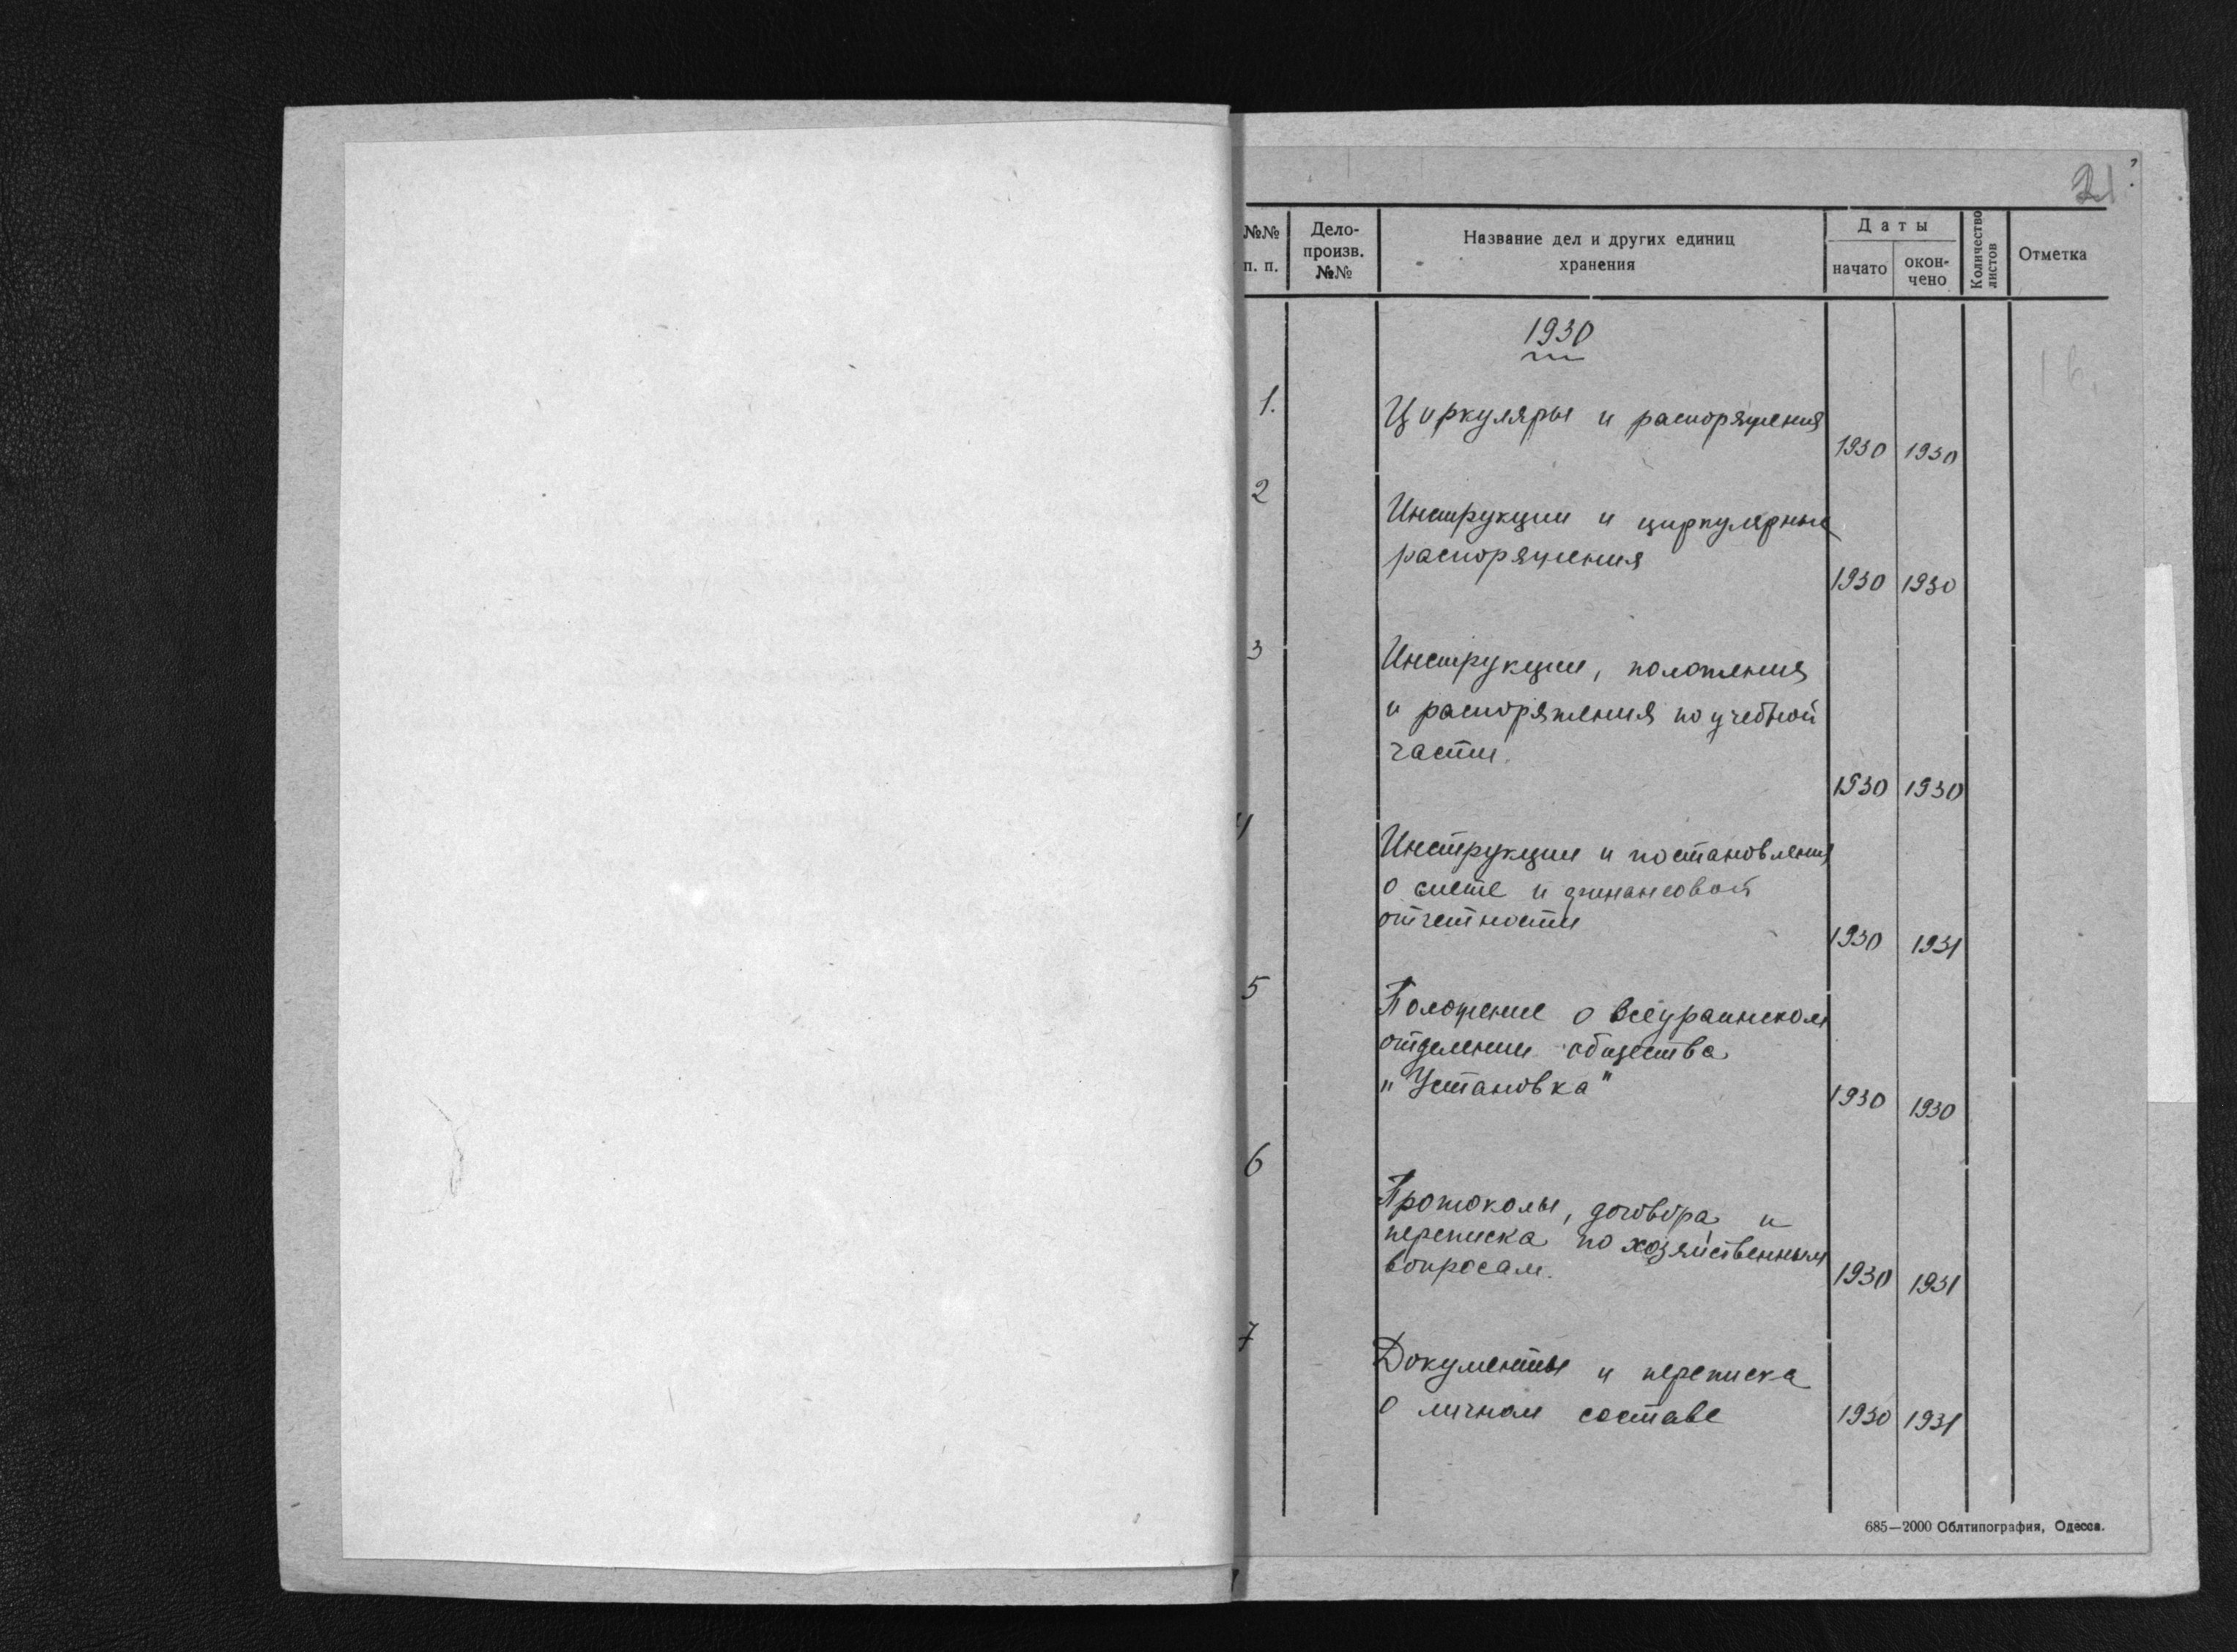 21
№№ п. п.
Дело-произв. №№
Название дел и других единиц хранения
Даты
начато
окон-чено
Количество листов
Отметка
1930
1.
Циркуляры и распоряжения
1930 1930
2
Инструкции и циркулярные
распоряжения
1930 1930
3
Инструкции, положения
и распоряжения по учебной
части.
1930 1930
4
Инструкции и постановления
о смете и финансовой
отчетности
1930 1931
5
Положение о Всеураинском
отделении общества
"Установка"
1930 1930
6
Протоколы, договора и
переписка по хозяйственным
вопросам.
1930 1931
7
Документы и переписка
о личном составе
1930 1931
685—2000 Облтипография, Одесса.